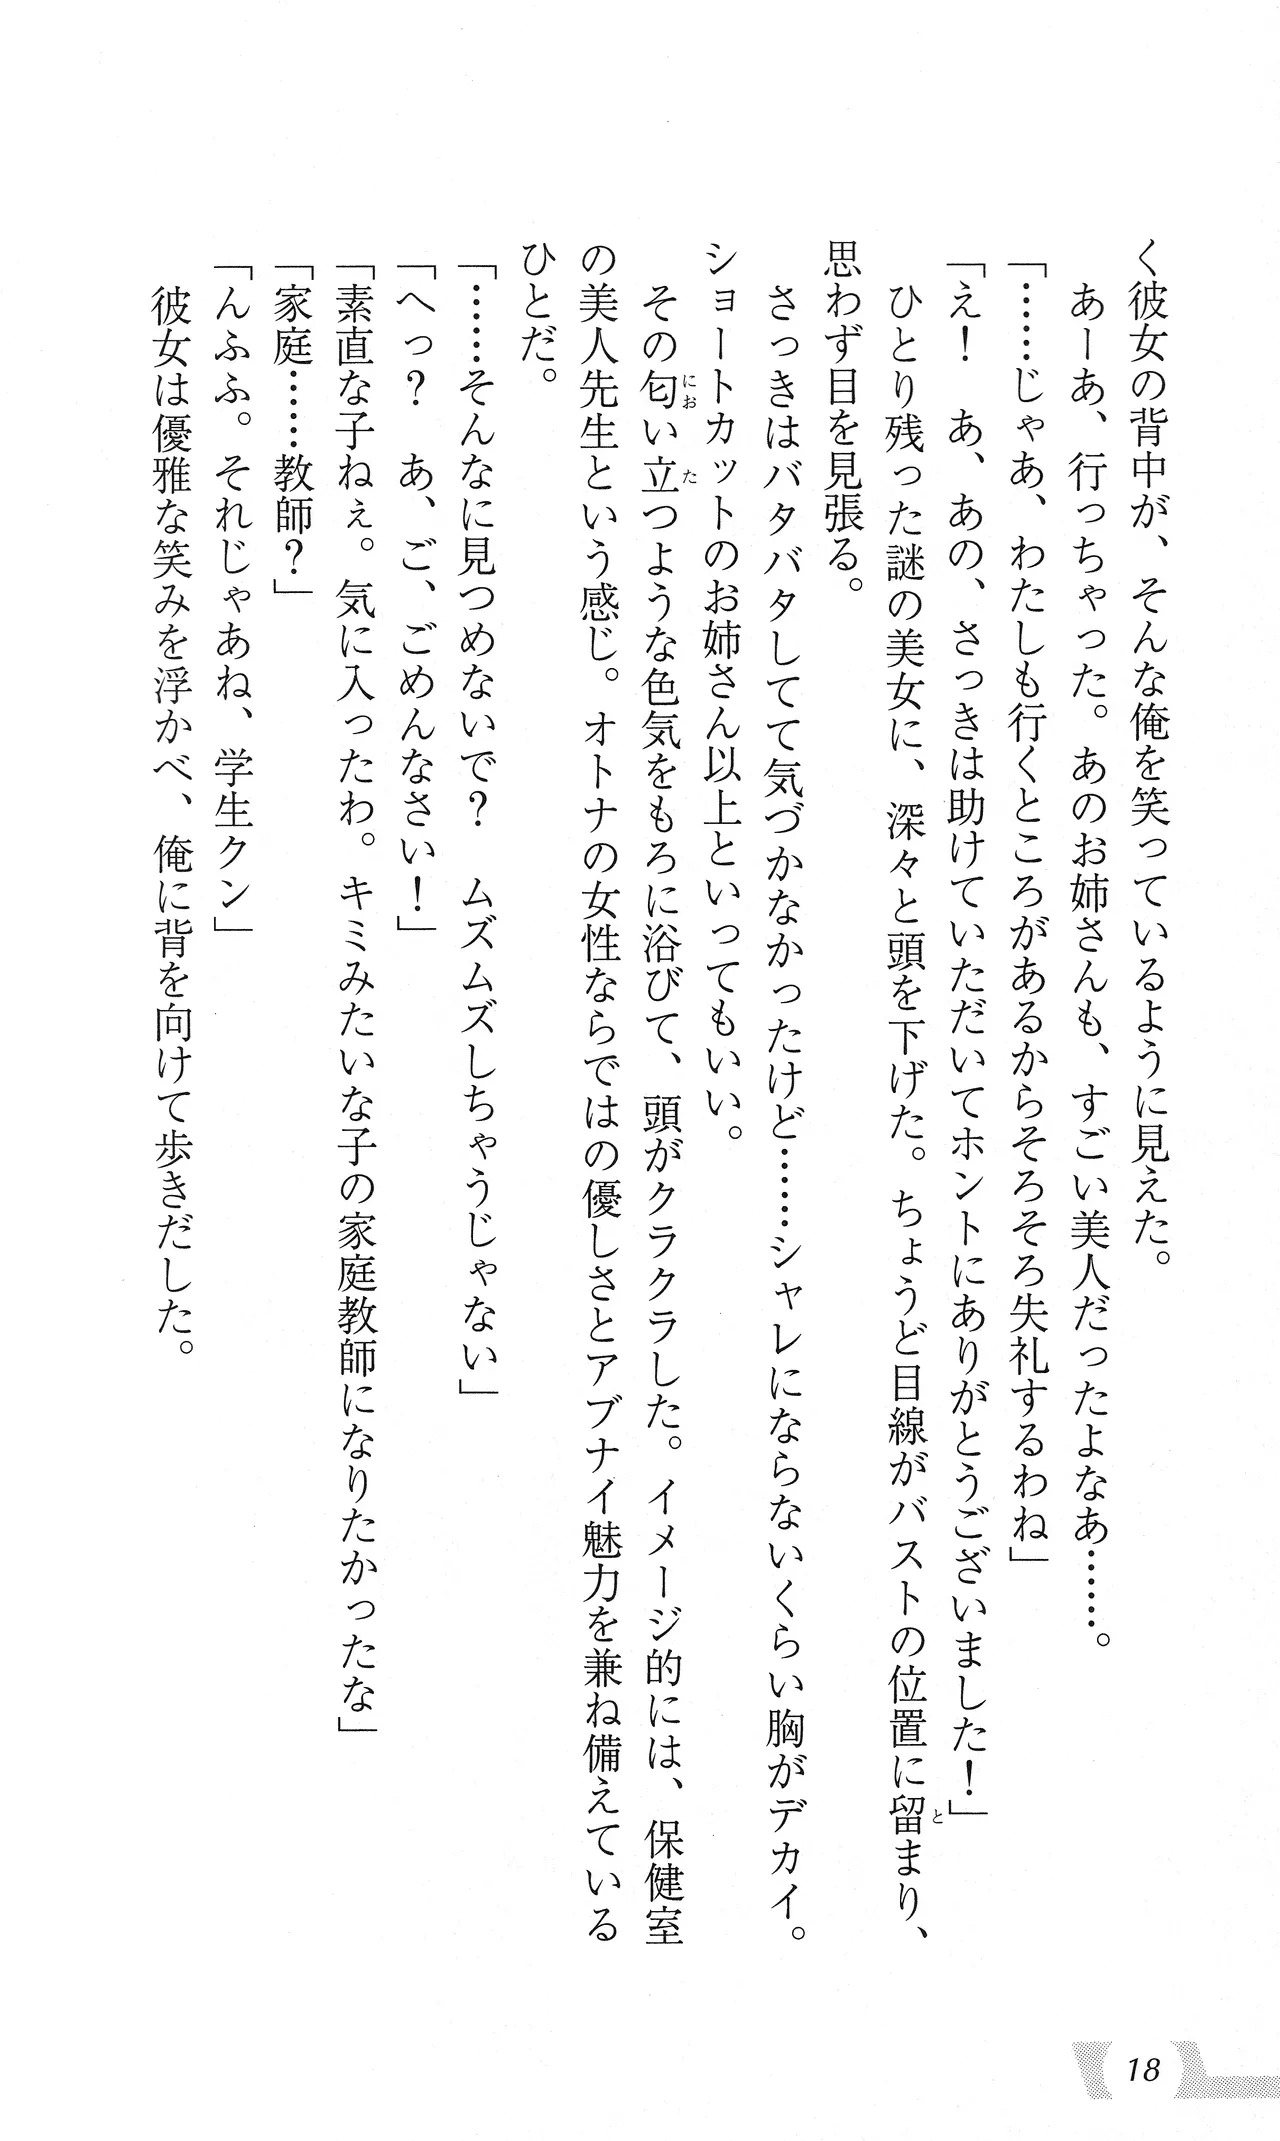 く彼女の背中が、そんな俺を笑っているように見えた。
あーあ、行っちゃった。あのお姉さんも、すごい美人だったよなあ……。
「……じゃあ、わたしも行くところがあるからそろそろ失礼するわね」
「え！　あ、あの、さっきは助けていただいてホントにありがとうございました！」
ひとり残った謎の美女に、深々と頭を下げた。ちょうど目線がバストの位置に留まり、
思わず目を見張る。
さっきはバタバタしてて気づかなかったけど……シャレにならないくらい胸がデカイ。
ショートカットのお姉さん以上といってもいい。
その匂い立つような色気をもろに浴びて、頭がクラクラした。イメージ的には、保健室
の美人先生という感じ。オトナの女性ならではの優しさとアブナイ魅力を兼ね備えている
ひとだ。
「……そんなに見つめないで？　ムズムズしちゃうじゃない」
「へっ？　あ、ご、ごめんなさい！」
「素直な子ねぇ。気に入ったわ。キミみたいな子の家庭教師になりたかったな」
「家庭……教師？」
「んふふ。それじゃあね、学生クン」
彼女は優雅な笑みを浮かべ、俺に背を向けて歩きだした。
18